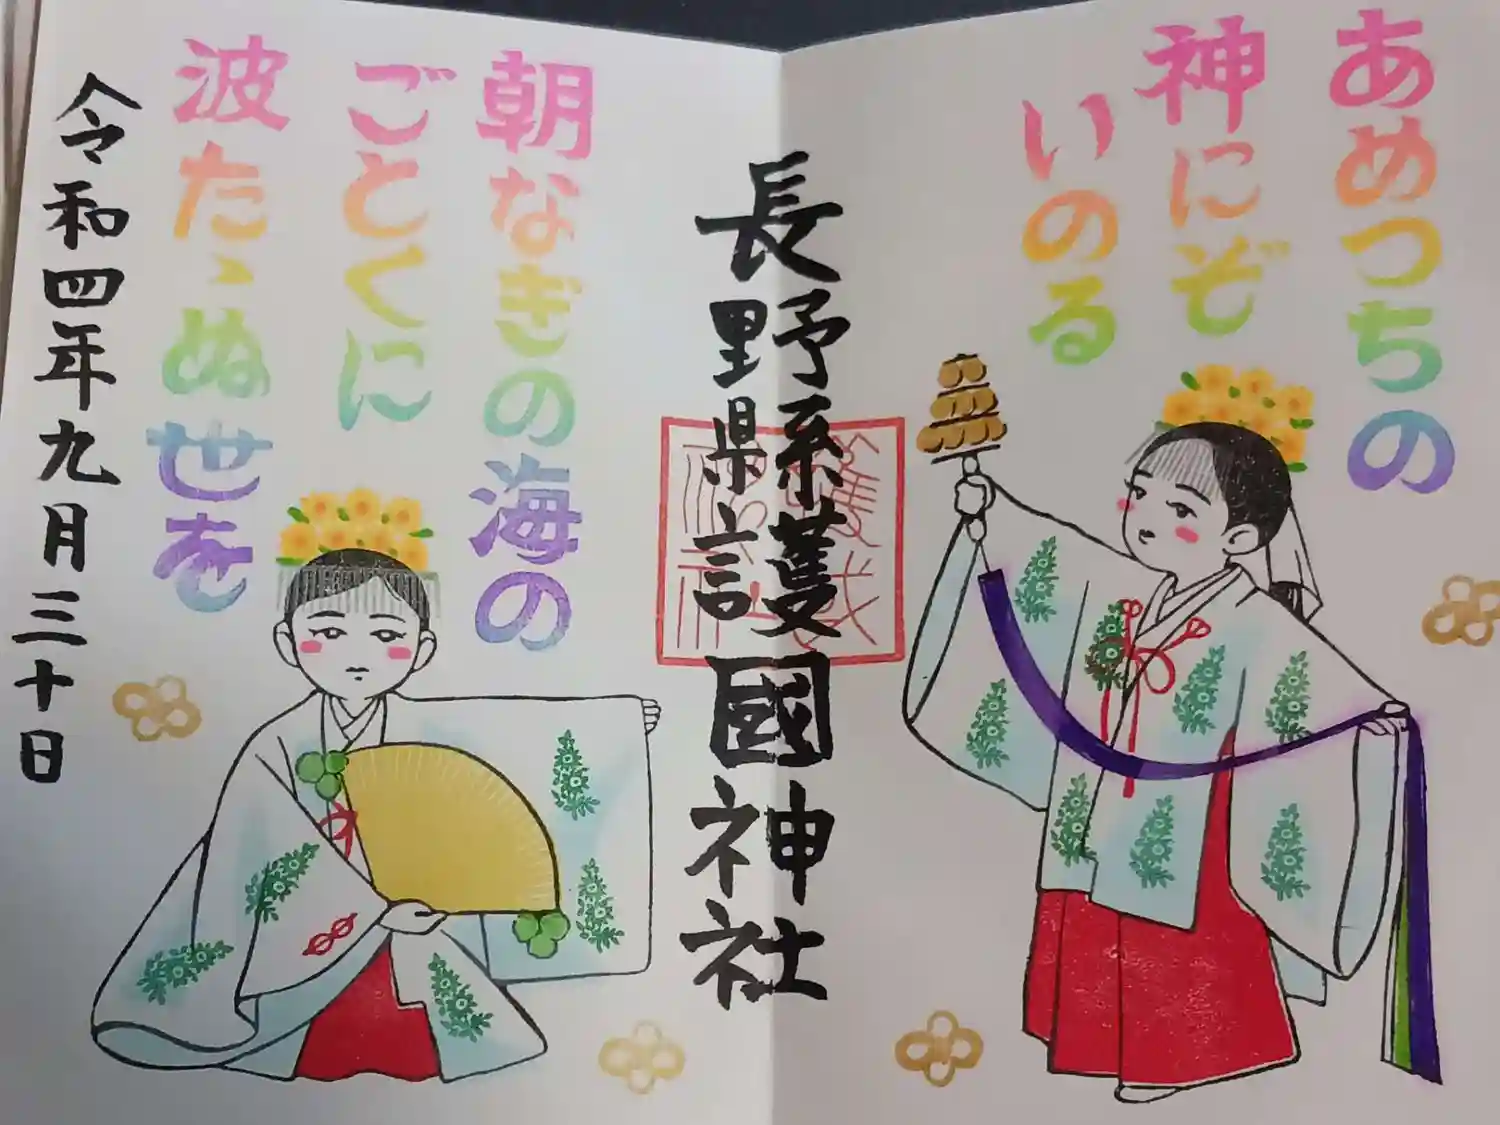 あめつちの
神にぞ
いのる
長野縣護國神社
朝なぎの海の
ごとくに
波たゝぬ世を
令和四年九月三十日